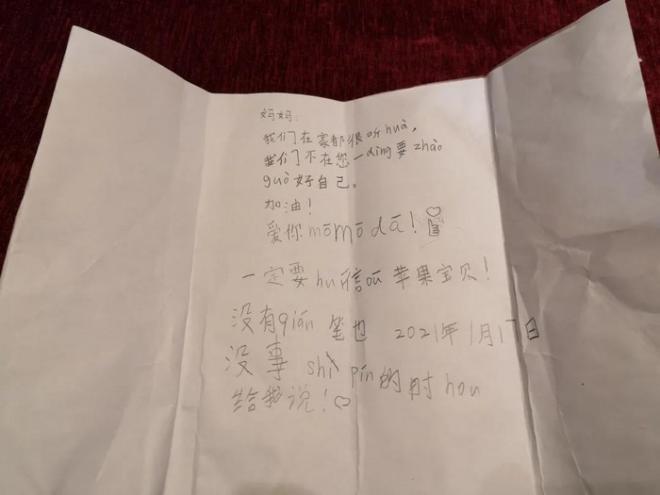 妈妈：
我们在家都很听huà，
我们不在您一dìng要zhào
guò好自己。
加油！
爱你mōmō dā！
一定要huí信ōu 苹果宝贝！
没有qiān笔也 2021年1月17日
没事 shì pín的时hou
给我说！